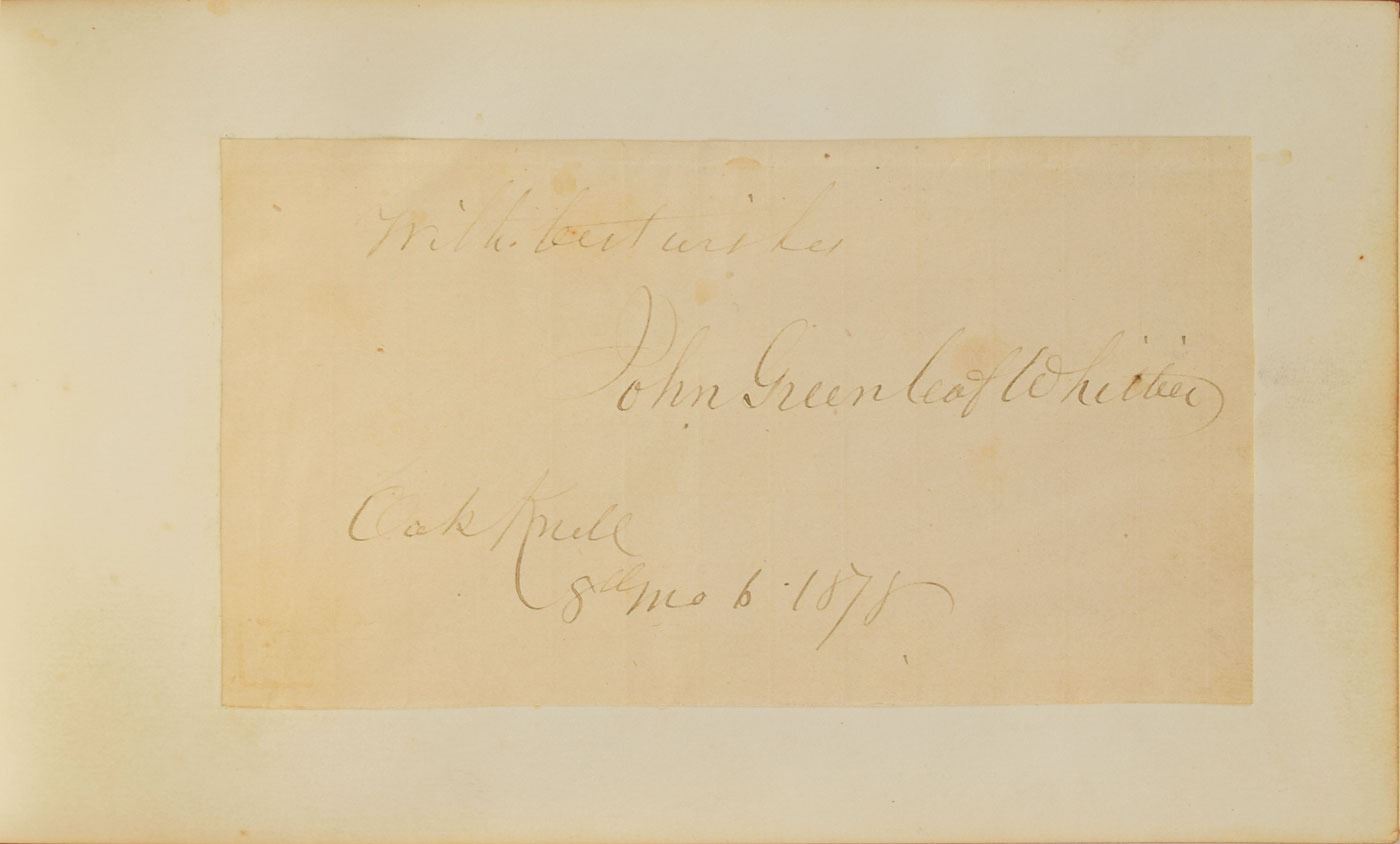 With best wishes
John Greenleaf Whittier
Oak Knoll
8th mo 6 1878